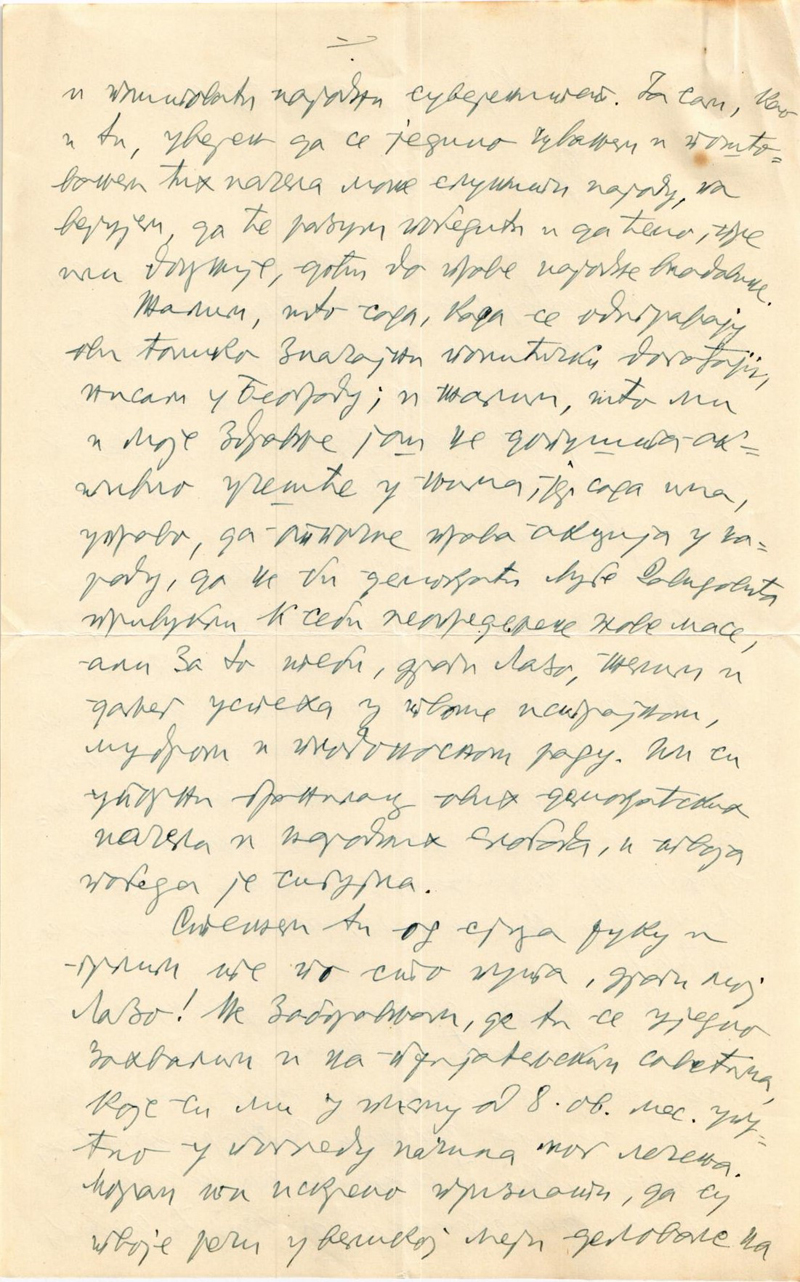 и поштовати народни суверенитет. Ја сам, као
и ти, уверен да се једино чувањем и пошто-
вањем тих начела може служити народу, па
верујем, да ће разум победити и да ћемо, пре
или доцније, доћи до праве народне владавине.
Жалим, што сада, када се одигравају
ови толико значајни политички догађаји,
нисам у Београду; и жалим, што ми
и моје здравље још не допушта ак-
тивно учешће у њима, јер сада има,
управо, да отпочне права акција у на-
роду, да не би демократи Љубе Давидовића
привукли к себи неопредељене нове масе,
али за то теби, драги Лазо, желим и
даљег успеха у твоме истрајном,
мудром и плодоносном раду. Ти си
убојни бранилац ових демократских
начела и народних слобода, и твоја
победа је сигурна.
Стежем ти од срца руку и
грлим те по сто пута, драги мој
Лазо! Не заборављам, да ти се уједно
захвалим и на пријатељским саветима,
које си ми у писму од 8. ов. мес. упу-
тио у погледу начина мог лечења.
Морам ти искрено признати, да су
твоје речи у великој мери деловале на